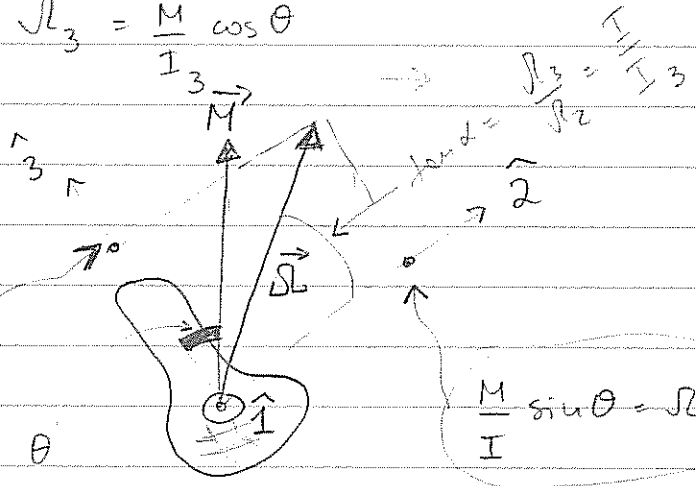 Ω₃ = M/I₃ cos θ
tan α = Ω₃/Ω₂ = I/I₃
M⃗
3̂
2̂
Ω⃗
1̂
M/I sin θ = Ω
θ